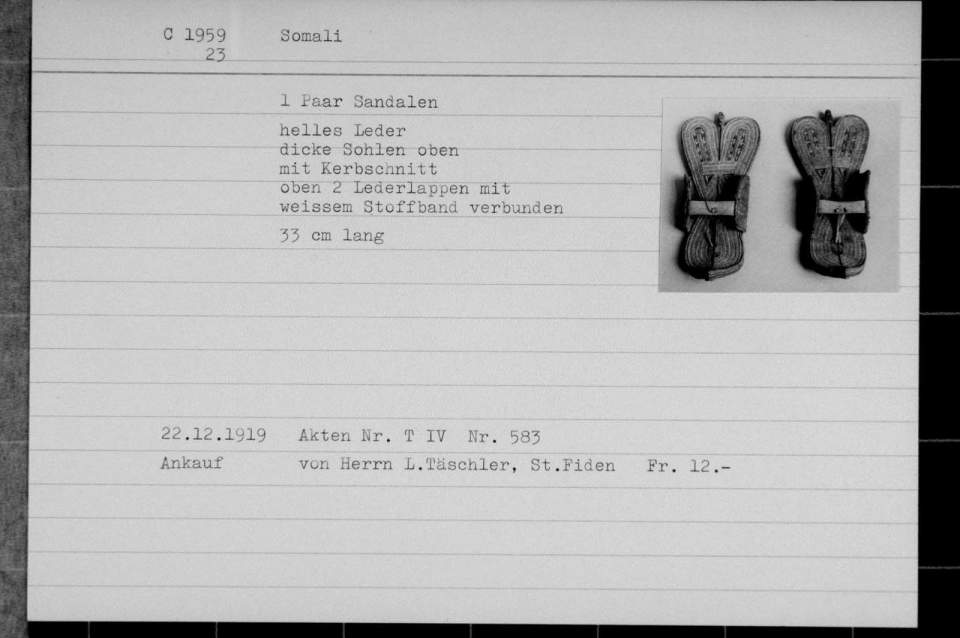 C 1959 Somali
23
1 Paar Sandalen
helles Leder
dicke Sohlen oben
mit Kerbschnitt
oben 2 Lederlappen mit
weissem Stoffband verbunden
33 cm lang
22.12.1919 Akten Nr. T IV Nr. 583
Ankauf von Herrn L.Täschler, St.Fiden Fr. 12.-